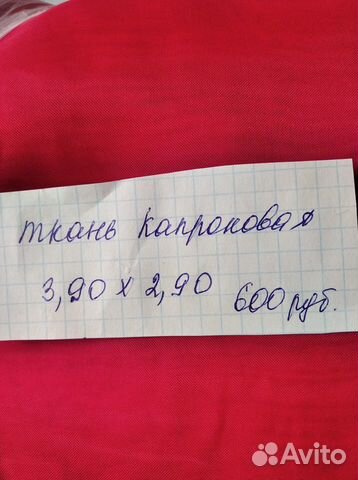 ткань капроновая
3,90 х 2,90 600 руб.
Avito